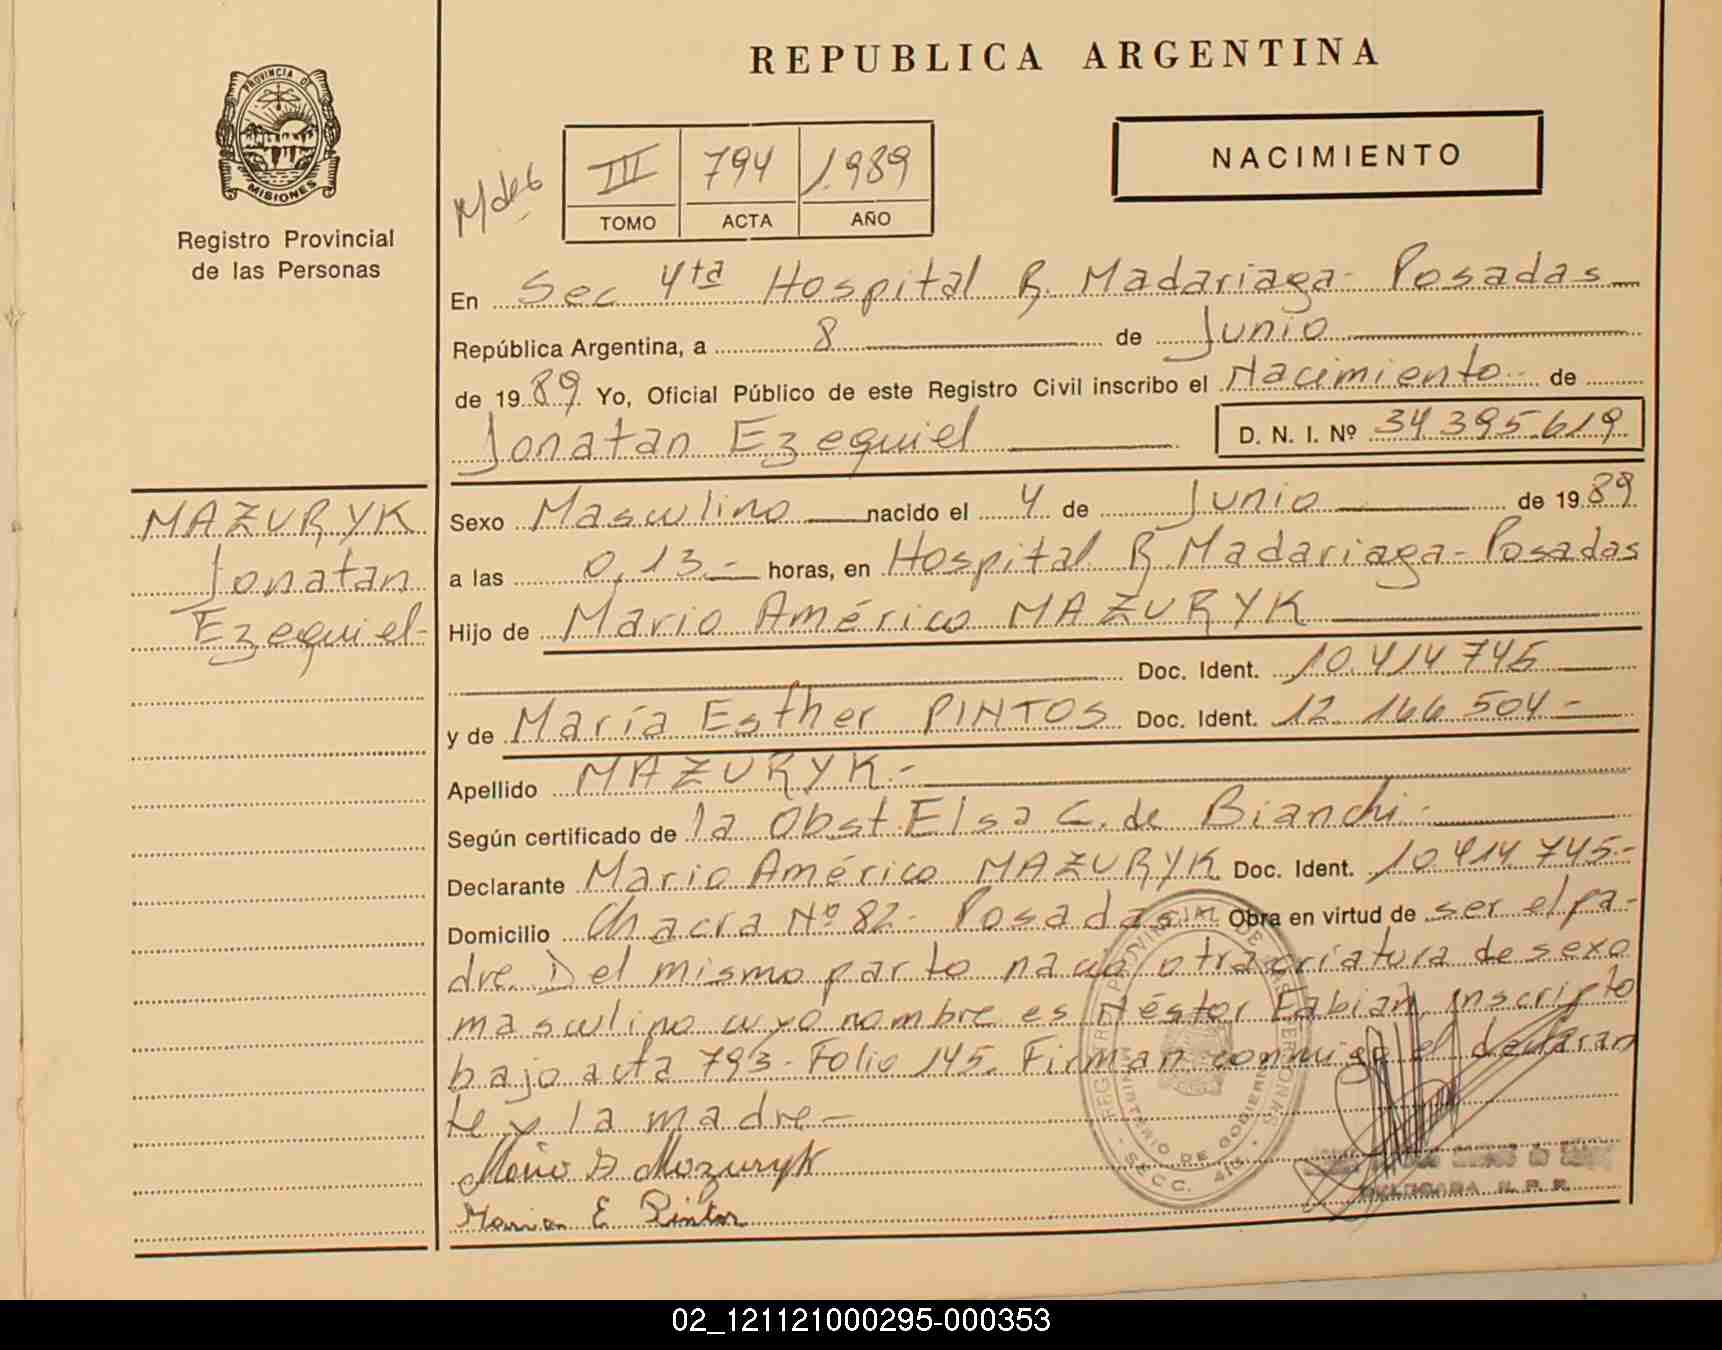 REPUBLICA ARGENTINA
PROVINCIA DE
MISIONES
Registro Provincial
de las Personas
III 794 1.989
TOMO ACTA AÑO
NACIMIENTO
En Sec 4ta Hospital R. Madariaga - Posadas
República Argentina, a 8 de Junio
de 1989 Yo, Oficial Público de este Registro Civil inscribo el Nacimiento de
Jonatan Ezequiel D. N. I. Nº 34 395.619
MAZURYK
Jonatan
Ezequiel-
Sexo Masculino nacido el 4 de Junio de 1989
a las 0,13.- horas, en Hospital R. Madariaga - Posadas
Hijo de Mario Américo MAZURYK
Doc. Ident. 10.414 745
y de María Esther PINTOS Doc. Ident. 12 166 504 -
Apellido MAZURYK.-
Según certificado de la Obst. Elsa C. de Bianchi.-
Declarante Mario Américo MAZURYK Doc. Ident. 10.414 745.-
Domicilio Chacra Nº 82 - Posadas Obra en virtud de ser el pa-
dre. Del mismo parto nació otra criatura de sexo
masculino cuyo nombre es Néstor Fabian, inscripto
bajo acta 793 - Folio 145. Firman conmigo el declaran
te y la madre-
REGISTRO PROVINCIAL DE LAS PERSONAS
MINISTERIO DE GOBIERNO
SECC. 4ta.
Mazuryk
E Pintos
DELEGADA R. P. P.
02_121121000295-000353